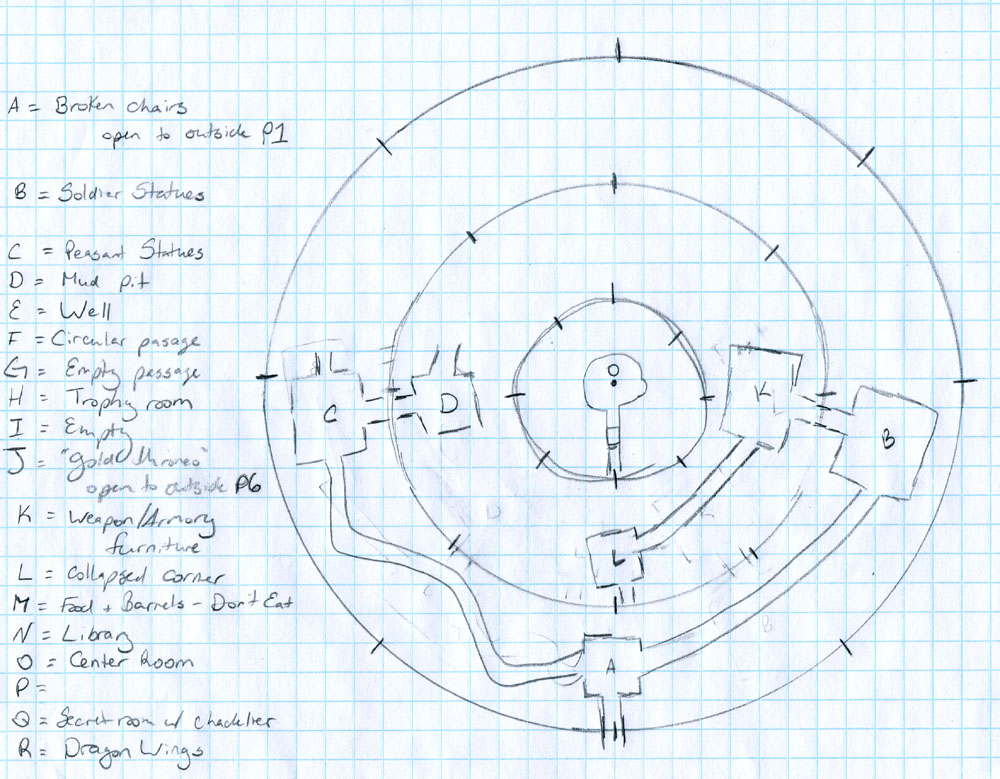 A = Broken chairs
open to outside P1
B = Soldier Statues
C = Peasant Statues
D = Mud pit
E = Well
F = Circular pasage
G = Empty passage
H = Trophy room
I = Empty
J = "gold thrones"
open to outside P6
K = Weapon/Armory
furniture
L = Collapsed corner
M = Food + Barrels - Don't Eat
N = Library
O = Center Room
P =
Q = Secret room w/ chadelier
R = Dragon Wings
O
K
C
D
B
L
A